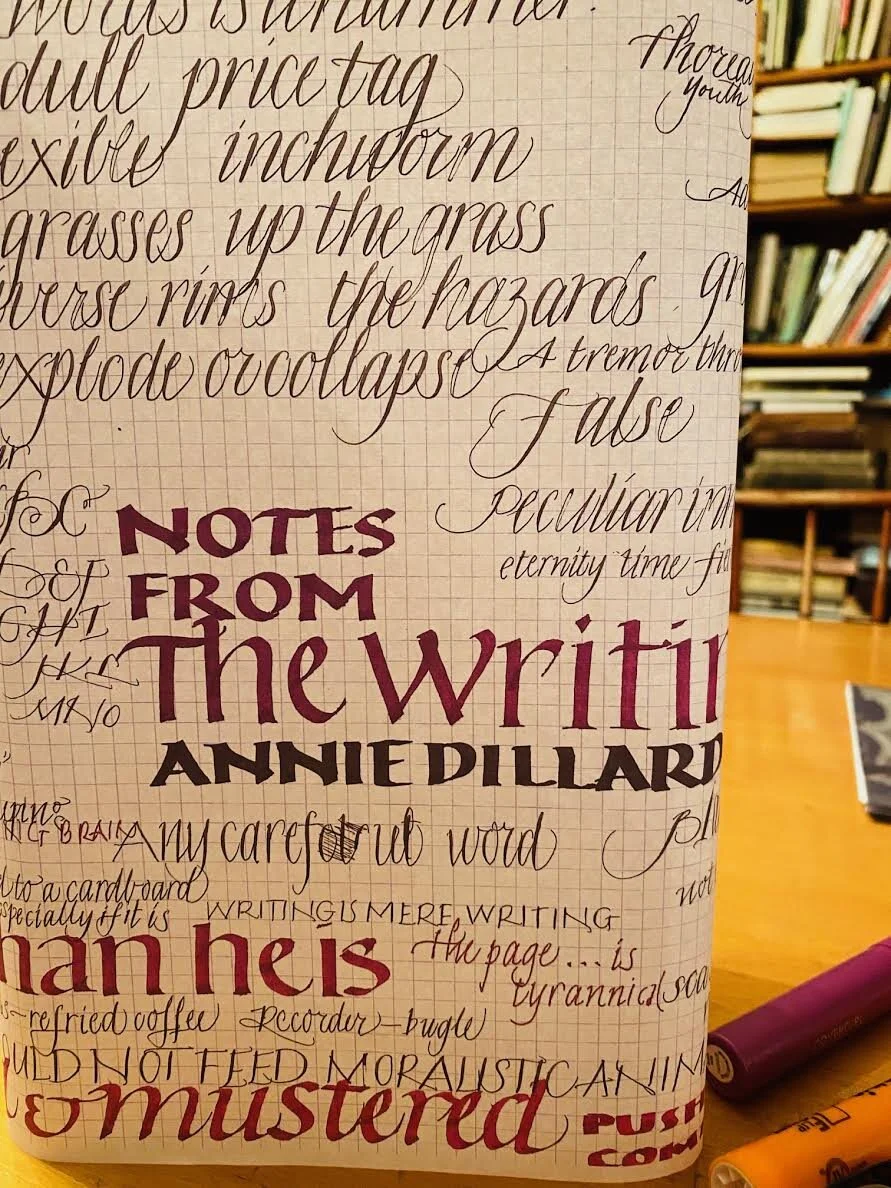 words is
Thoreau
dull price tag
Youth
inchworm
grasses up the grass
rims the hazards
explode or collapse A tremor
False
NOTES
Peculiar
FROM
eternity time
DEF
GHI
The Writin
JKL
MNO
ANNIE DILLARD
BRAIN Any careful word
to a cardboard
especially if it is WRITING IS MERE WRITING
not
han he is the page... is
tyrannical
refried coffee Recorder-bugle
OULD NOT FEED MORALISTIC ANIM
& mustered
PUSH
COM